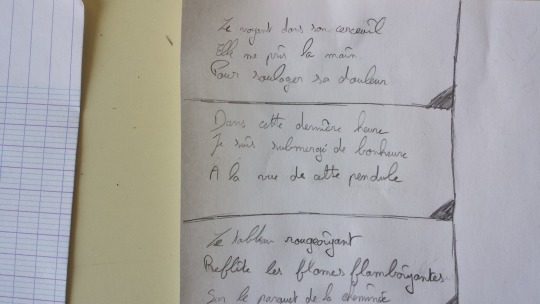 Le voyant dans son cerceuil
Elle me pris la main
Pour soulager sa douleur
Dans cette dernière heure
Je suis submergé de bonheure
A la vue de cette pendule
Le tableau rougeoîyant
Reflète les flames flamboîyantes
Sur le parquet de la cheminée